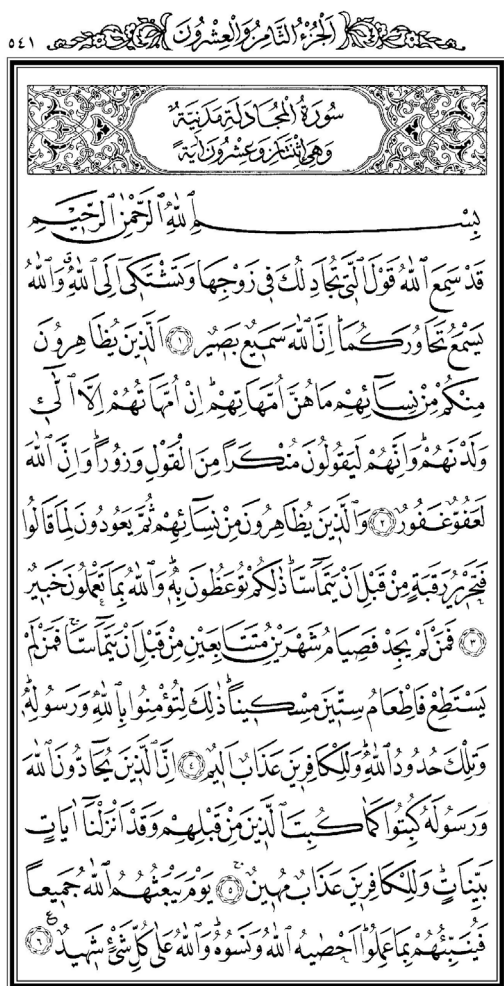 اَلْجُزْءُ الثَّامِنُ وَالْعِشْرُونَ ٥٤١
سُورَةُ الْمُجَادَلَةِ مَدَنِيَّةٌ
وَهِيَ اثْنَتَانِ وَعِشْرُونَ اٰيَةً
بِسْمِ اللّٰهِ الرَّحْمٰنِ الرَّحِيمِ
قَدْ سَمِعَ اللّٰهُ قَوْلَ الَّتِي تُجَادِلُكَ فِي زَوْجِهَا وَتَشْتَكِٓي اِلَى اللّٰهِۗ وَاللّٰهُ
يَسْمَعُ تَحَاوُرَكُمَاۜ اِنَّ اللّٰهَ سَمِيعٌ بَصِيرٌ ﴿١﴾ اَلَّذِينَ يُظَاهِرُونَ
مِنْكُمْ مِنْ نِسَٓائِهِمْ مَا هُنَّ اُمَّهَاتِهِمْۜ اِنْ اُمَّهَاتُهُمْ اِلَّا الّٰٓئِ
وَلَدْنَهُمْۜ وَاِنَّهُمْ لَيَقُولُونَ مُنْكَرًا مِنَ الْقَوْلِ وَزُورًاۜ وَاِنَّ اللّٰهَ
لَعَفُوٌّ غَفُورٌ ﴿٢﴾ وَالَّذِينَ يُظَاهِرُونَ مِنْ نِسَٓائِهِمْ ثُمَّ يَعُودُونَ لِمَا قَالُوا
فَتَحْرِيرُ رَقَبَةٍ مِنْ قَبْلِ اَنْ يَتَمَٓاسَّاۜ ذٰلِكُمْ تُوعَظُونَ بِهۜ وَاللّٰهُ بِمَا تَعْمَلُونَ خَبِيرٌ
﴿٣﴾ فَمَنْ لَمْ يَجِدْ فَصِيَامُ شَهْرَيْنِ مُتَتَابِعَيْنِ مِنْ قَبْلِ اَنْ يَتَمَٓاسَّاۚ فَمَنْ لَمْ
يَسْتَطِعْ فَاِطْعَامُ سِتِّينَ مِسْكِينًاۜ ذٰلِكَ لِتُؤْمِنُوا بِاللّٰهِ وَرَسُولِهۜ
وَتِلْكَ حُدُودُ اللّٰهِۜ وَلِلْكَافِرِينَ عَذَابٌ اَلِيمٌ ﴿٤﴾ اِنَّ الَّذِينَ يُحَٓادُّونَ اللّٰهَ
وَرَسُولَهُ كُبِتُوا كَمَا كُبِتَ الَّذِينَ مِنْ قَبْلِهِمْ وَقَدْ اَنْزَلْنَٓا اٰيَاتٍ
بَيِّنَاتٍۜ وَلِلْكَافِرِينَ عَذَابٌ مُهِينٌۚ ﴿٥﴾ يَوْمَ يَبْعَثُهُمُ اللّٰهُ جَمِيعًا
فَيُنَبِّئُهُمْ بِمَا عَمِلُواۜ اَحْصٰيهُ اللّٰهُ وَنَسُوهُۜ وَاللّٰهُ عَلٰى كُلِّ شَيْءٍ شَهِيدٌ۟ ﴿٦﴾